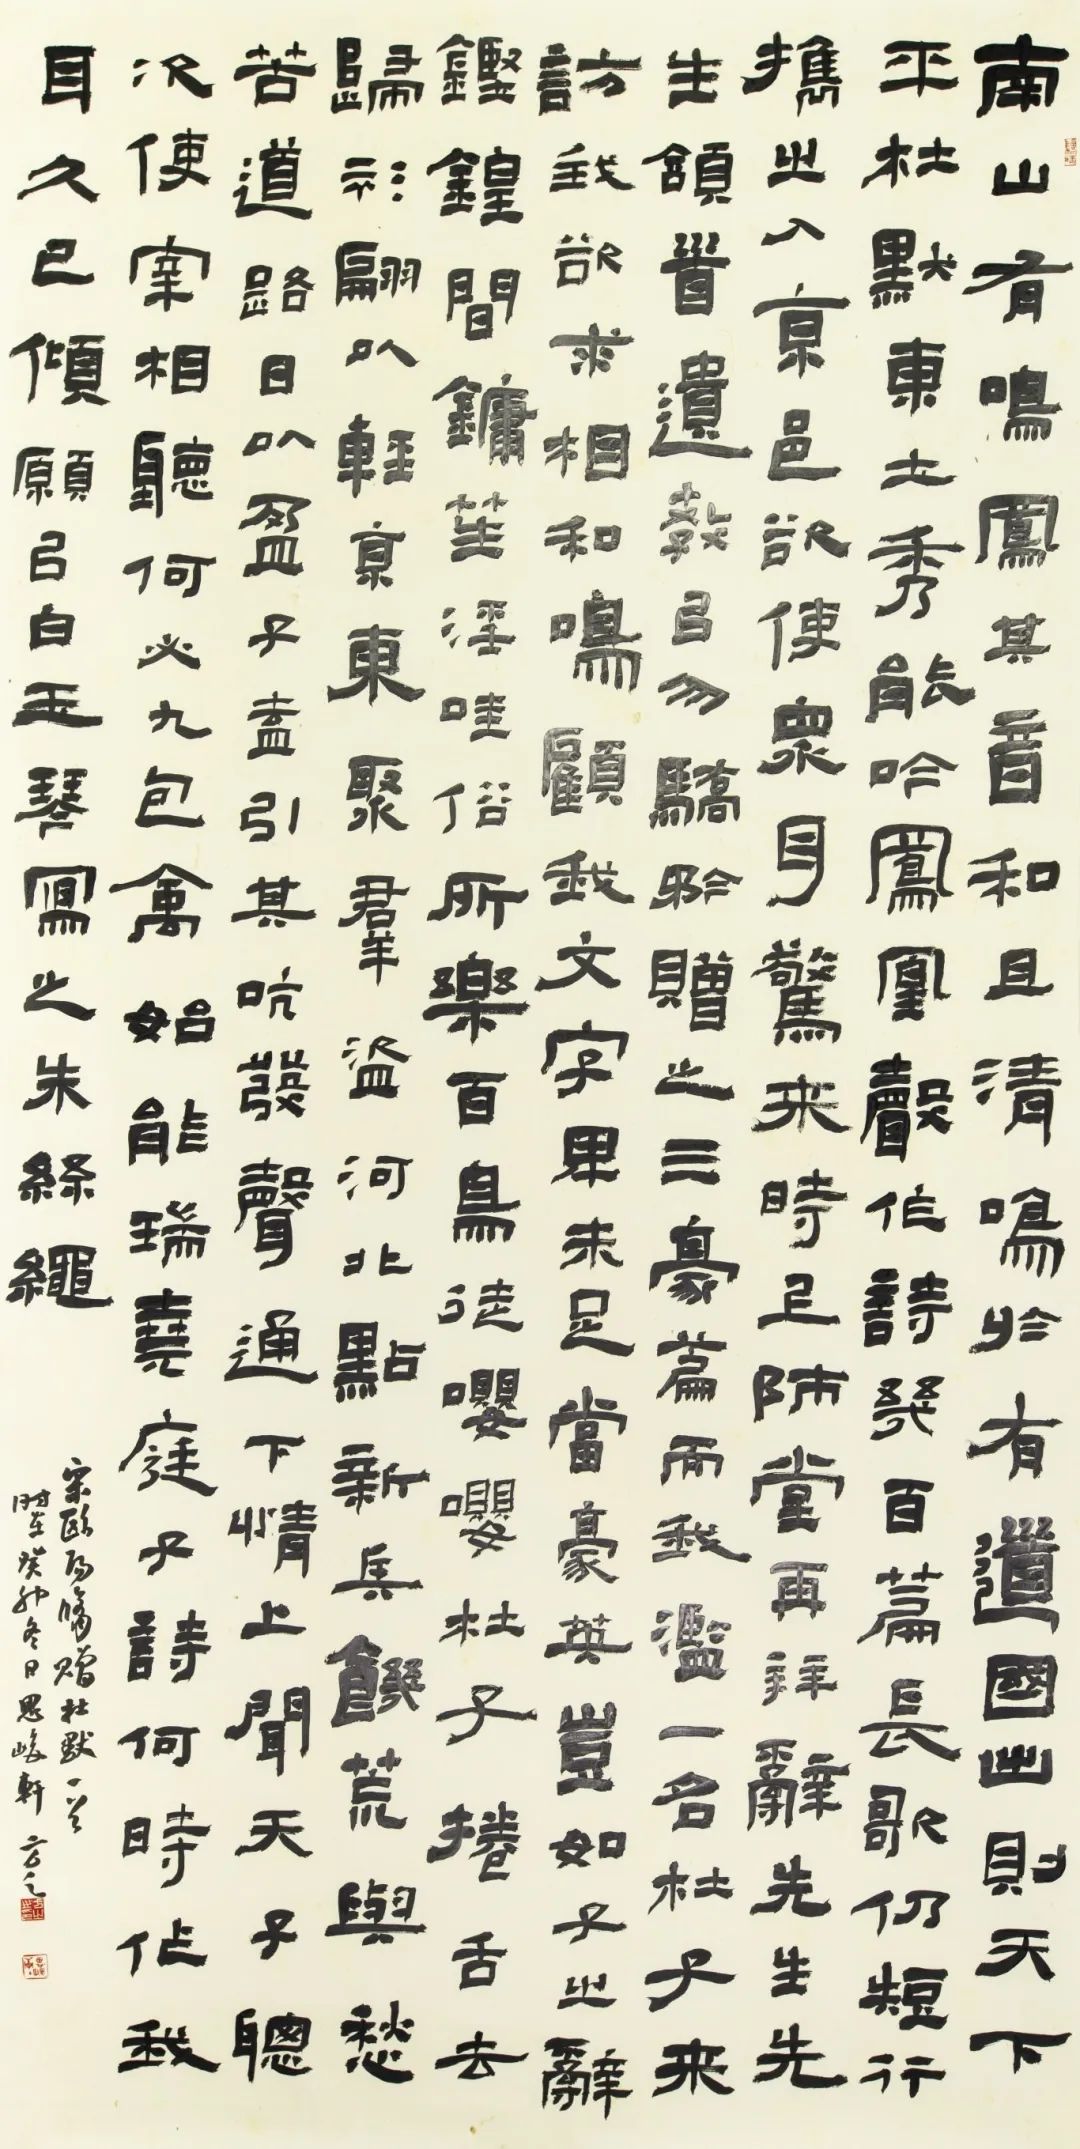 南山有鳴鳳其音和且清鳴於有道國出則天下
平杜默東土秀能吟鳳凰聲作詩幾百篇長歌仍短行
携之入京邑欲使衆耳驚来時上師堂再拜辭先生先
生頷首遺教以勿驕矜贈之三豪篇而我濫一名杜子来
訪我欲求相和鳴顧我文字卑未足當豪英豈如子之辭
鏗鍠間鏞笙淫哇俗所樂百鳥徒嚶嚶杜子捲舌去
歸衫翩以輕京東聚羣盜河北點新兵饑荒與愁
苦道路日以盈子盍引其吭發聲通下情上聞天子聰
次使宰相聽何必九包禽始能瑞堯庭子詩何時作我
耳久已傾願以白玉琴寫之朱絲繩
宋歐陽脩贈杜默一首
時在癸卯冬日思峻軒